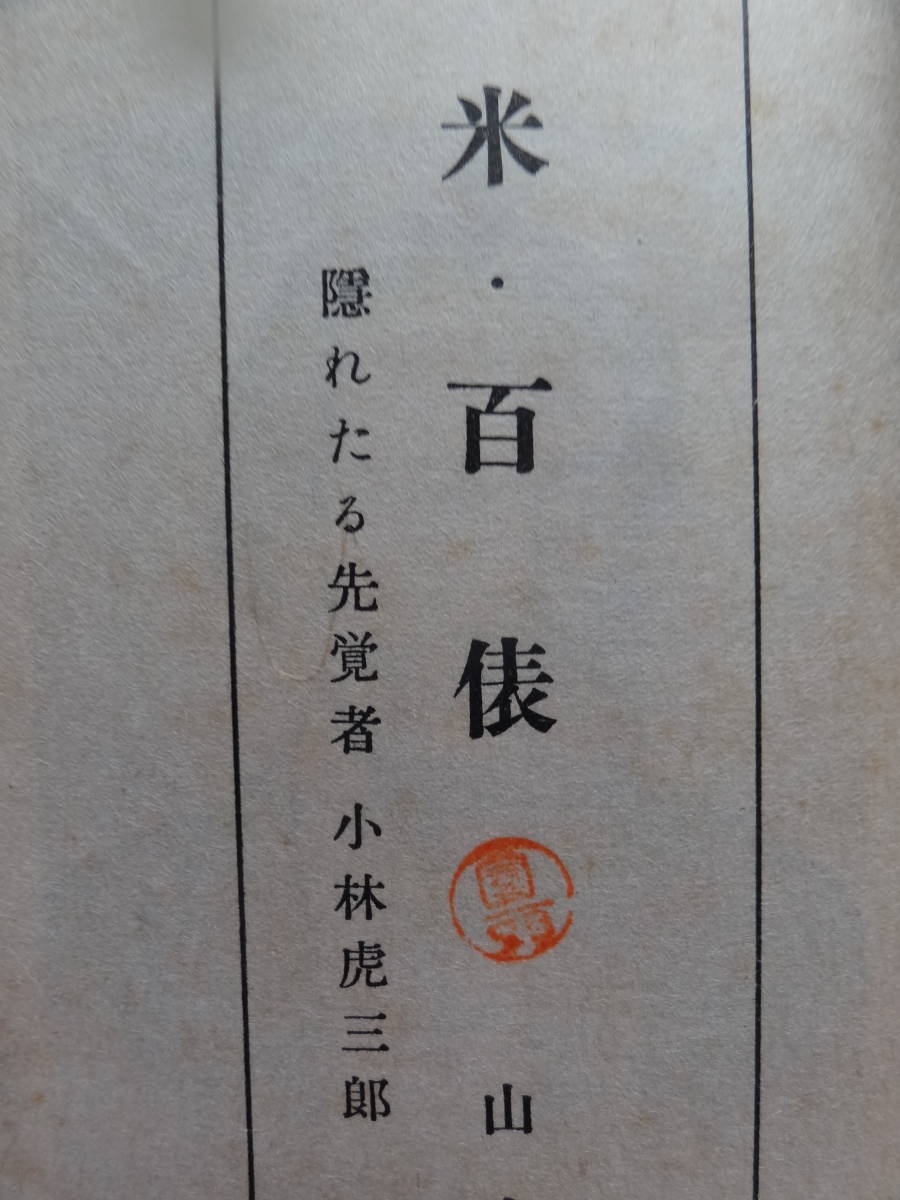 米・百俵 山
隠れたる先覚者 小林虎三郎